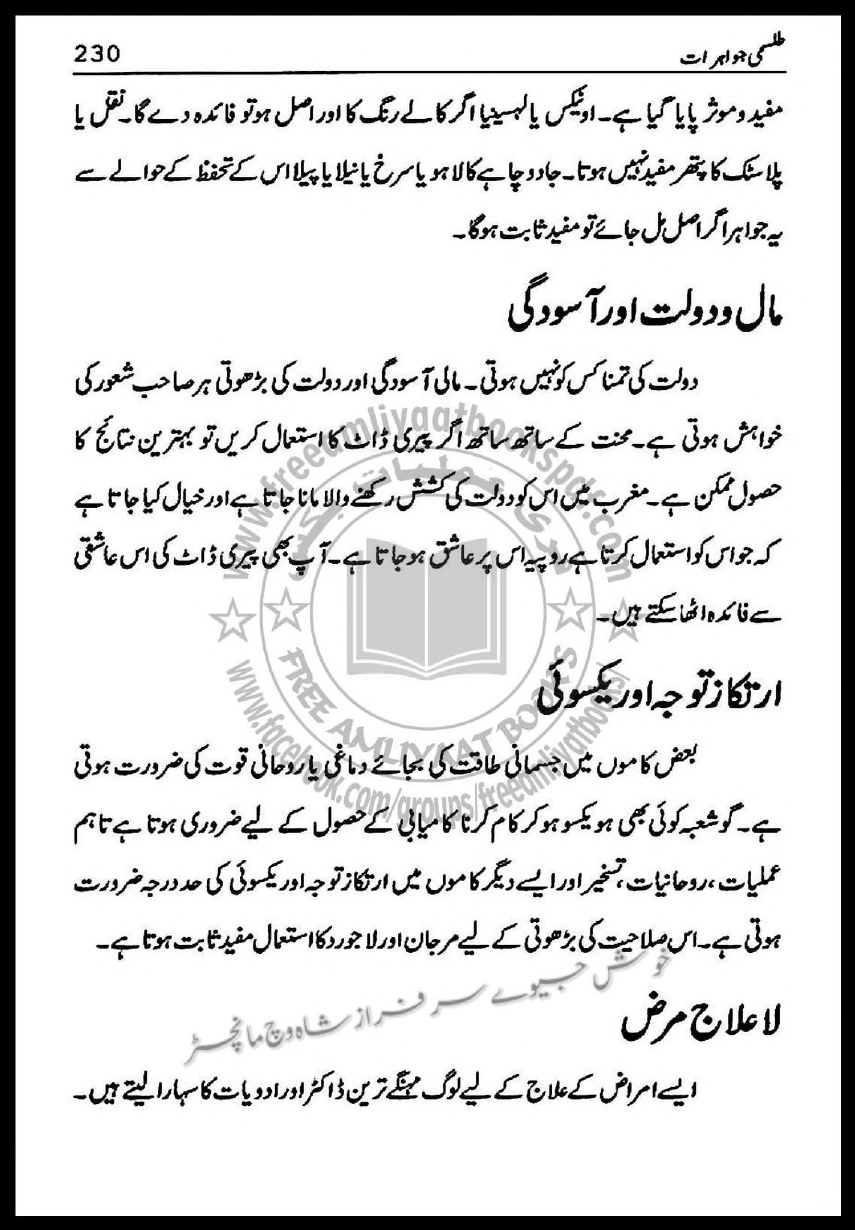 طلسمی جواہرات
230
مفید و موثر پایا گیا ہے۔ اونیکس یا لہسینیا اگر کالے رنگ کا اور اصل ہو تو فائدہ دے گا۔ نقلی یا
پلاسٹک کا پتھر مفید نہیں ہوتا۔ جادو چاہے کالا ہو یا سرخ یا نیلا یا پیلا اس کے تحفظ کے حوالے سے
یہ جواہر اگر اصل مل جائے تو مفید ثابت ہوگا۔
مال و دولت اور آسودگی
دولت کی تمنا کس کو نہیں ہوتی۔ مالی آسودگی اور دولت کی بڑھوتی ہر صاحب شعور کی
خواہش ہوتی ہے۔ محنت کے ساتھ ساتھ اگر پیری ڈاٹ کا استعمال کریں تو بہترین نتائج کا
حصول ممکن ہے۔ مغرب میں اس کو دولت کی کشش رکھنے والا مانا جاتا ہے اور خیال کیا جاتا ہے
کہ جو اس کو استعمال کرتا ہے روپیہ اس پر عاشق ہو جاتا ہے۔ آپ بھی پیری ڈاٹ کی اس عاشقی
سے فائدہ اٹھا سکتے ہیں۔
ارتکاز توجہ اور یکسوئی
بعض کاموں میں جسمانی طاقت کی بجائے دماغی یا روحانی قوت کی ضرورت ہوتی
ہے۔ گو شعبہ کوئی بھی ہو یکسو ہو کر کام کرنا کامیابی کے حصول کے لیے ضروری ہوتا ہے تاہم
عملیات، روحانیات، تسخیر اور ایسے دیگر کاموں میں ارتکاز توجہ اور یکسوئی کی حد درجہ ضرورت
ہوتی ہے۔ اس صلاحیت کی بڑھوتی کے لیے مرجان اور لاجورد کا استعمال مفید ثابت ہوتا ہے۔
خوش جیوے سرفراز شاہ وچ مانچسٹر
لاعلاج مرض
ایسے امراض کے علاج کے لیے لوگ مہنگے ترین ڈاکٹر اور ادویات کا سہارا لیتے ہیں۔
www.freeamliyaatbookspdf.com
FREE AMLIYAAT BOOKS
www.facebook.com/groups/freeamliyatbooks/